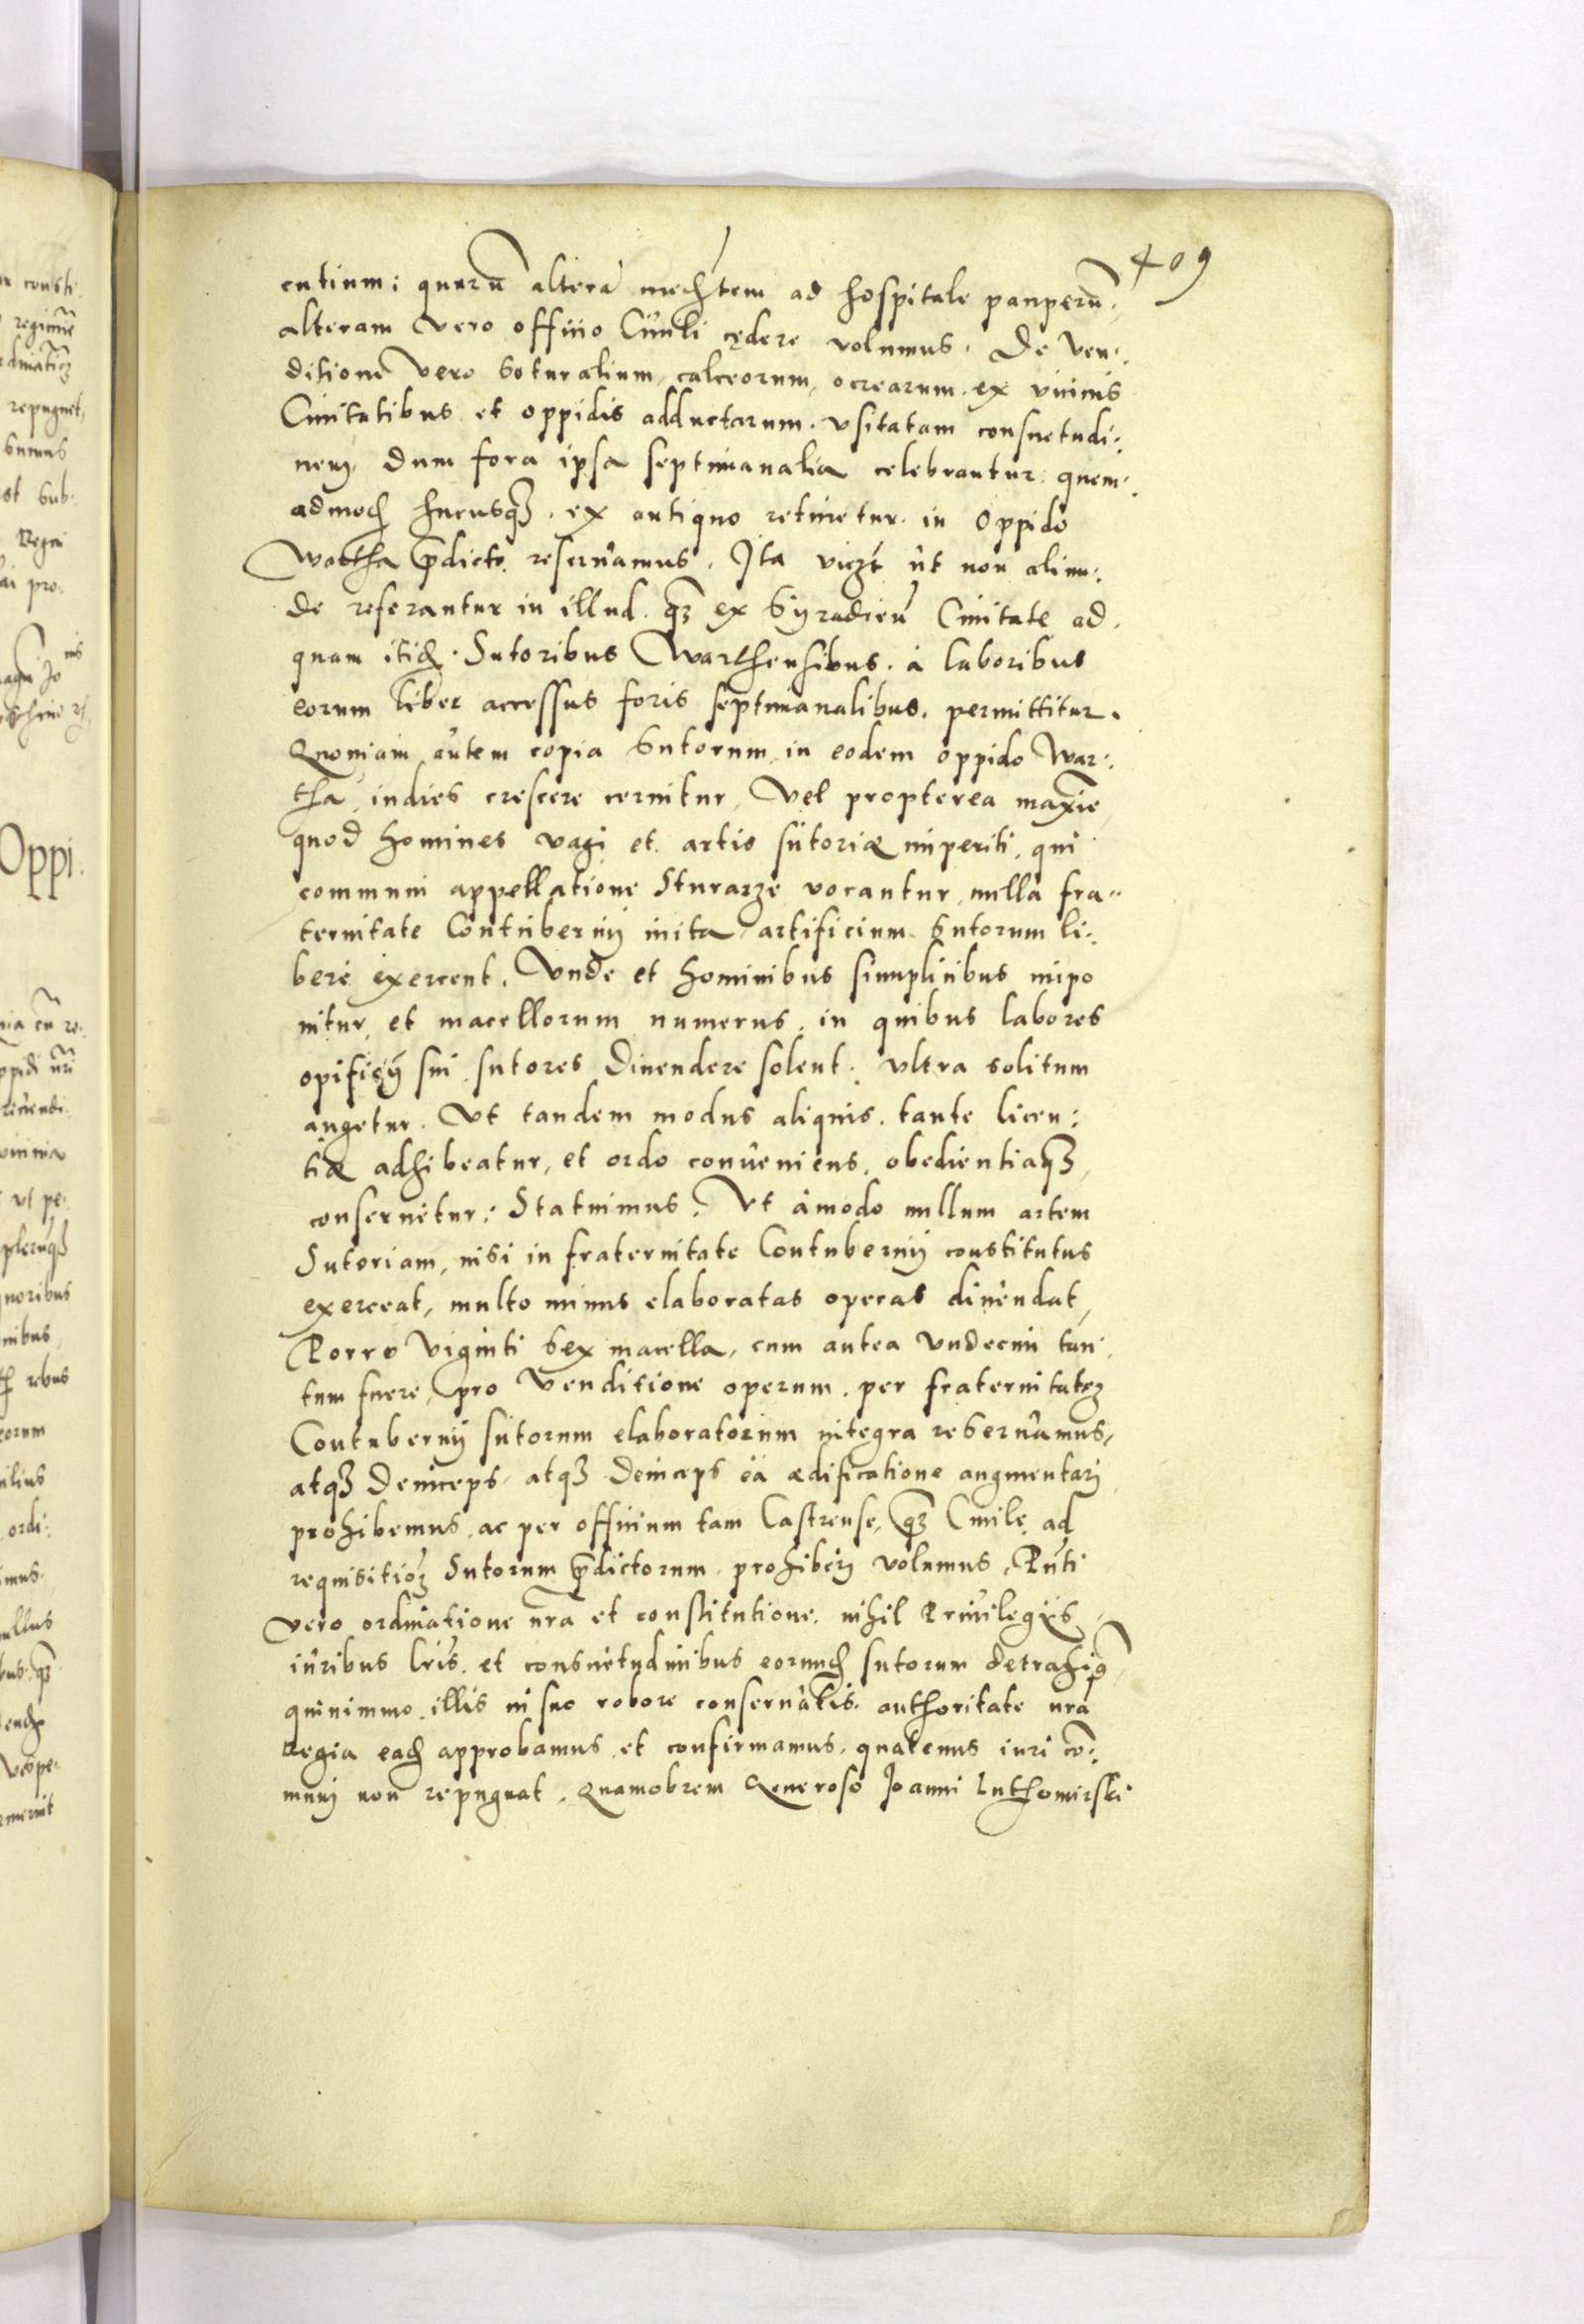 409
cutium: quarū alterā medtem ad hospitale pauperū.
alteram vero officio Ciuili cędere volumus. De ven:
ditione vero Soturalium, calceorum, ocrearum. ex vicinis
Ciuitatibus et oppidis adductarum. vsitatam consuetudi:
nem, dum fora ipsa septimanalia celebrantur. quem:
admod hucusqȝ. ex antiquo retinetur. in Oppido
Wartha p̄dicto. reseruamus. Ita viczt ut non aliun:
de referantur in illud. qȝ ex Syradien Ciuitate ad.
quam itid. Sutoribus Warthensibus. a laboribus
eorum liber accessus foris septimanalibus. permittitur.
Quoniam autem copia Sutorum, in eodem oppido War:
tha, indies crescere cernitur, Vel propterea maxīe
quod homines vagi et artis sutoriæ imperiti. qui
communi appellatione Sturarze vocantur, nulla fra:
ternitate Contubernij inita, artificium Sutorum li:
bere exercent. Vnde et hominibus simplicibus impo
nitur, et macellorum numerus. in quibus labores
opificij sui sutores diuendere solent. vltra solitum
augetur. Vt tandem modus aliquis. tante licen:
tiæ adhibeatur, et ordo conueniens, obedientiaqȝ,
conseruetur: Statuimus. Vt amodo nullum artem
Sutoriam, nisi in fraternitate Contubernij constitutus
exerceat, multo minus elaboratas operas diuendat,
Porro viginti sex macella, cum antea vndecim tan
tum fuere, pro venditione operum. per fraternitatȝ
Contubernij sutorum elaboratorum integra reseruamus,
atqȝ deinceps, atqȝ deinceps ea ædificatione augmentari
prohibemus, ac per officium tam Castrense, qȝ Ciuile ad
requisitioȝ Sutorum p̄dictorum. prohiberi volumus, Pn̄ti
vero ordinatione nrā et constitutione. nihil Priuilegijs
iuribus lrīs. et consuetudinibus eorund sutorum detrahiq̄
quinimmo illis in suo robore conseruatis. authoritate nrā
Regia ead approbamus, et confirmamus. quatenus iuri cō:
muni non repugnat. Quamobrem Generoso Joanni Luthomirski